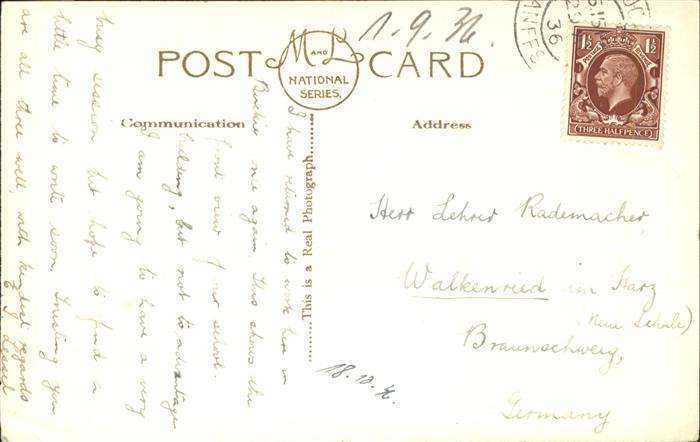 1.9.36.
POST M AND L CARD
NATIONAL
SERIES.
Communication
Address
This is a Real Photograph.
36
1½ 1½
POSTAGE REVENUE
THREE HALFPENCE
I have returned to work here in
Buckie once again. This shows the
front view of our school
building, but not to advantage.
I am going to have a very
busy session but hope to find a
little time to write soon. Trusting you
are all three well, with kindest regards
Herr Lehrer Rademacher,
Walkenried im Harz
(Neue Schule)
Braunschweig,
Germany
18.10.36.